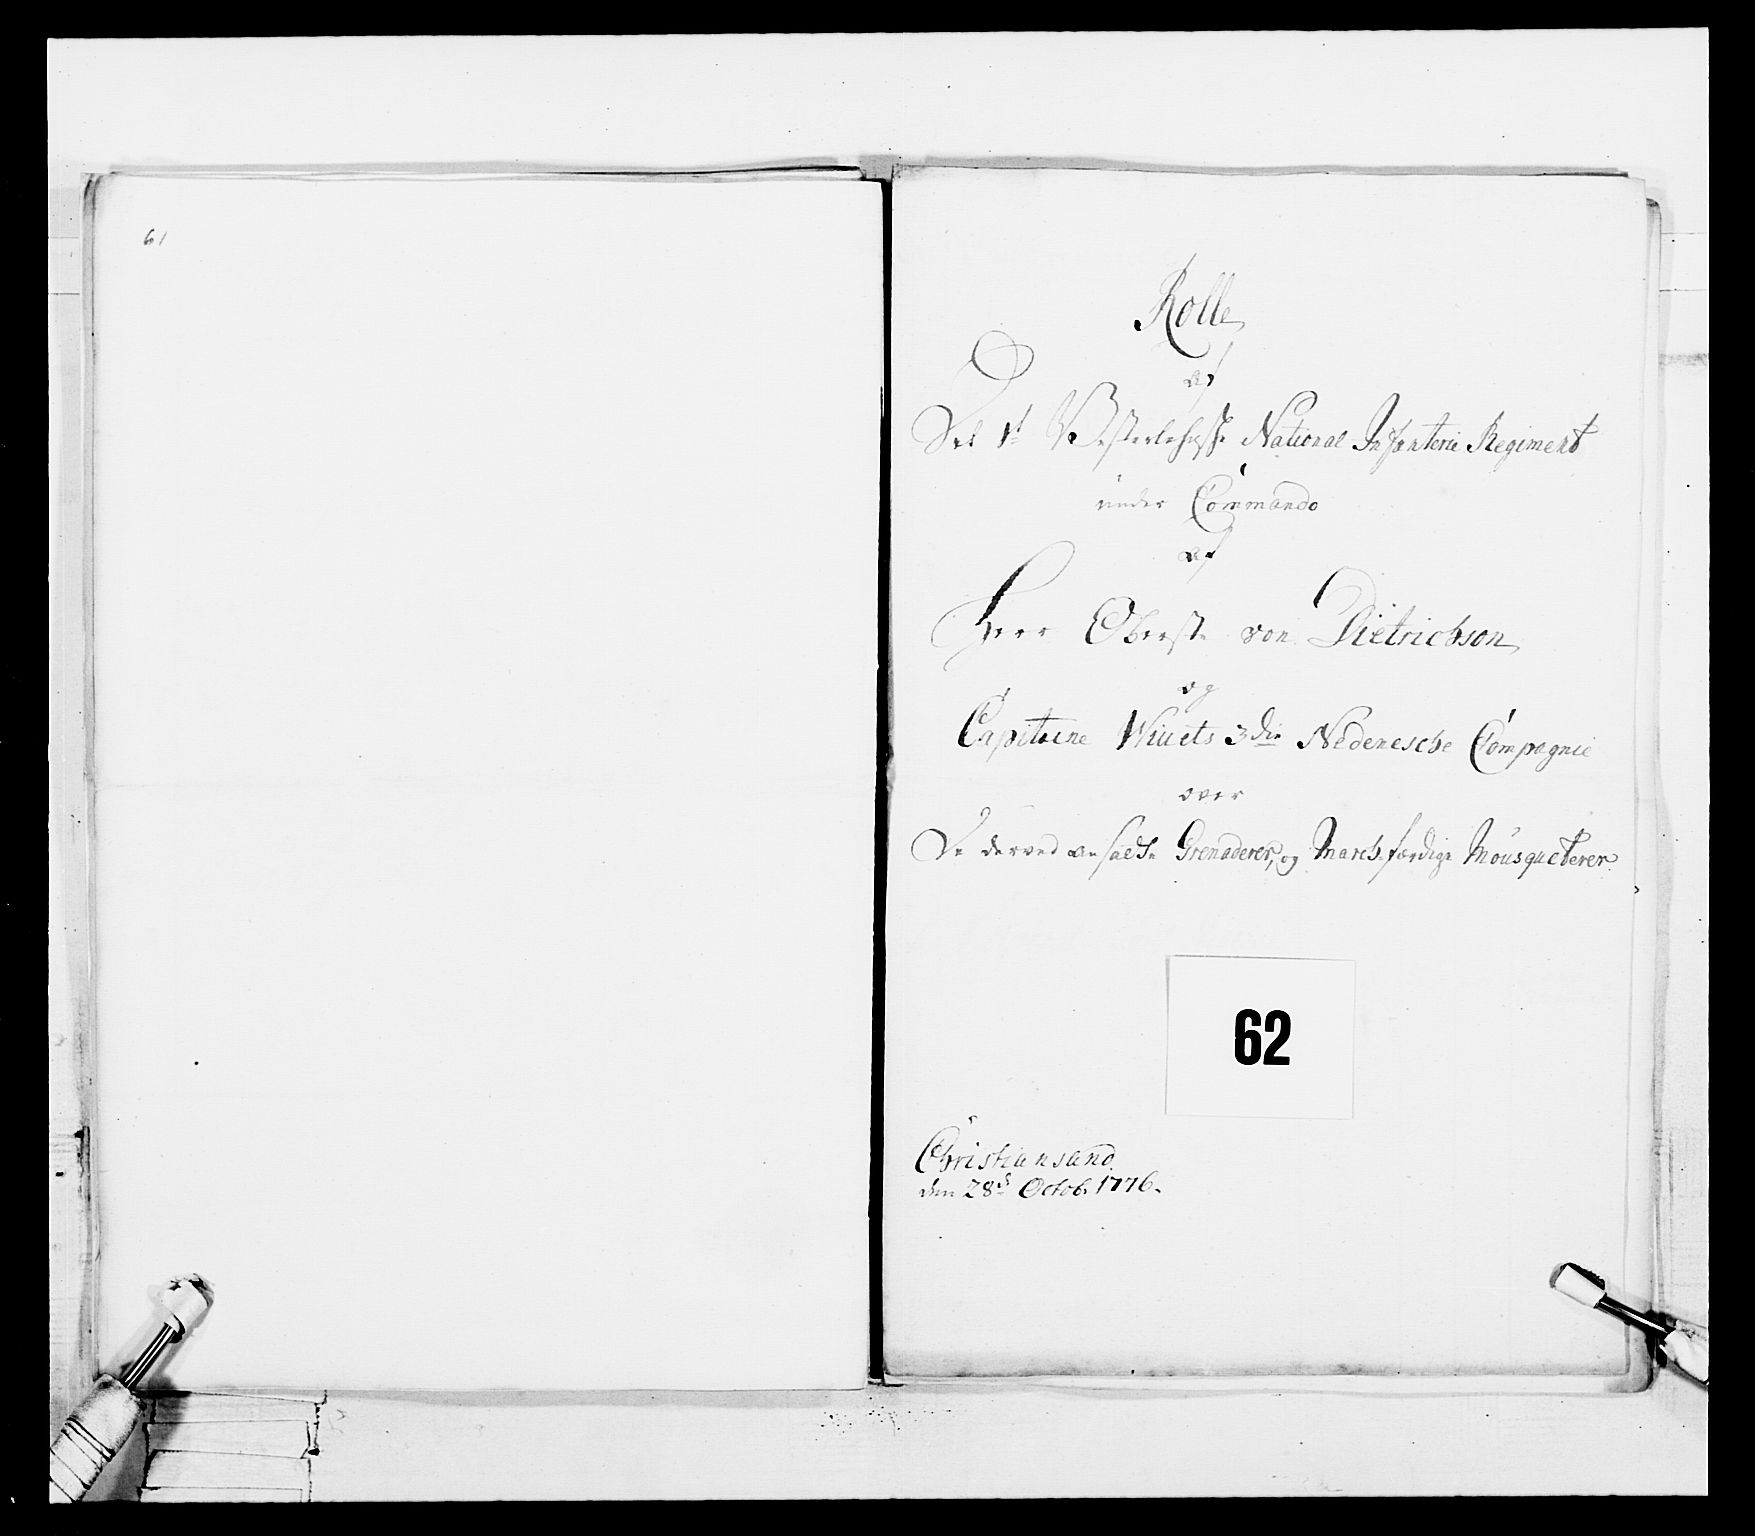 61
Rolle
af
Det 1t Vesterlehnske National Infanterie Regiment
under Commando
af
Herr Oberste von Dietrichson
og
Capitaine Wiuets 3die Nedenesche Compagnie
over
De derved ansadte Grenaderer, og March-færdige Mousqueterer
62
Christiansand
den 28d Octob. 1776.